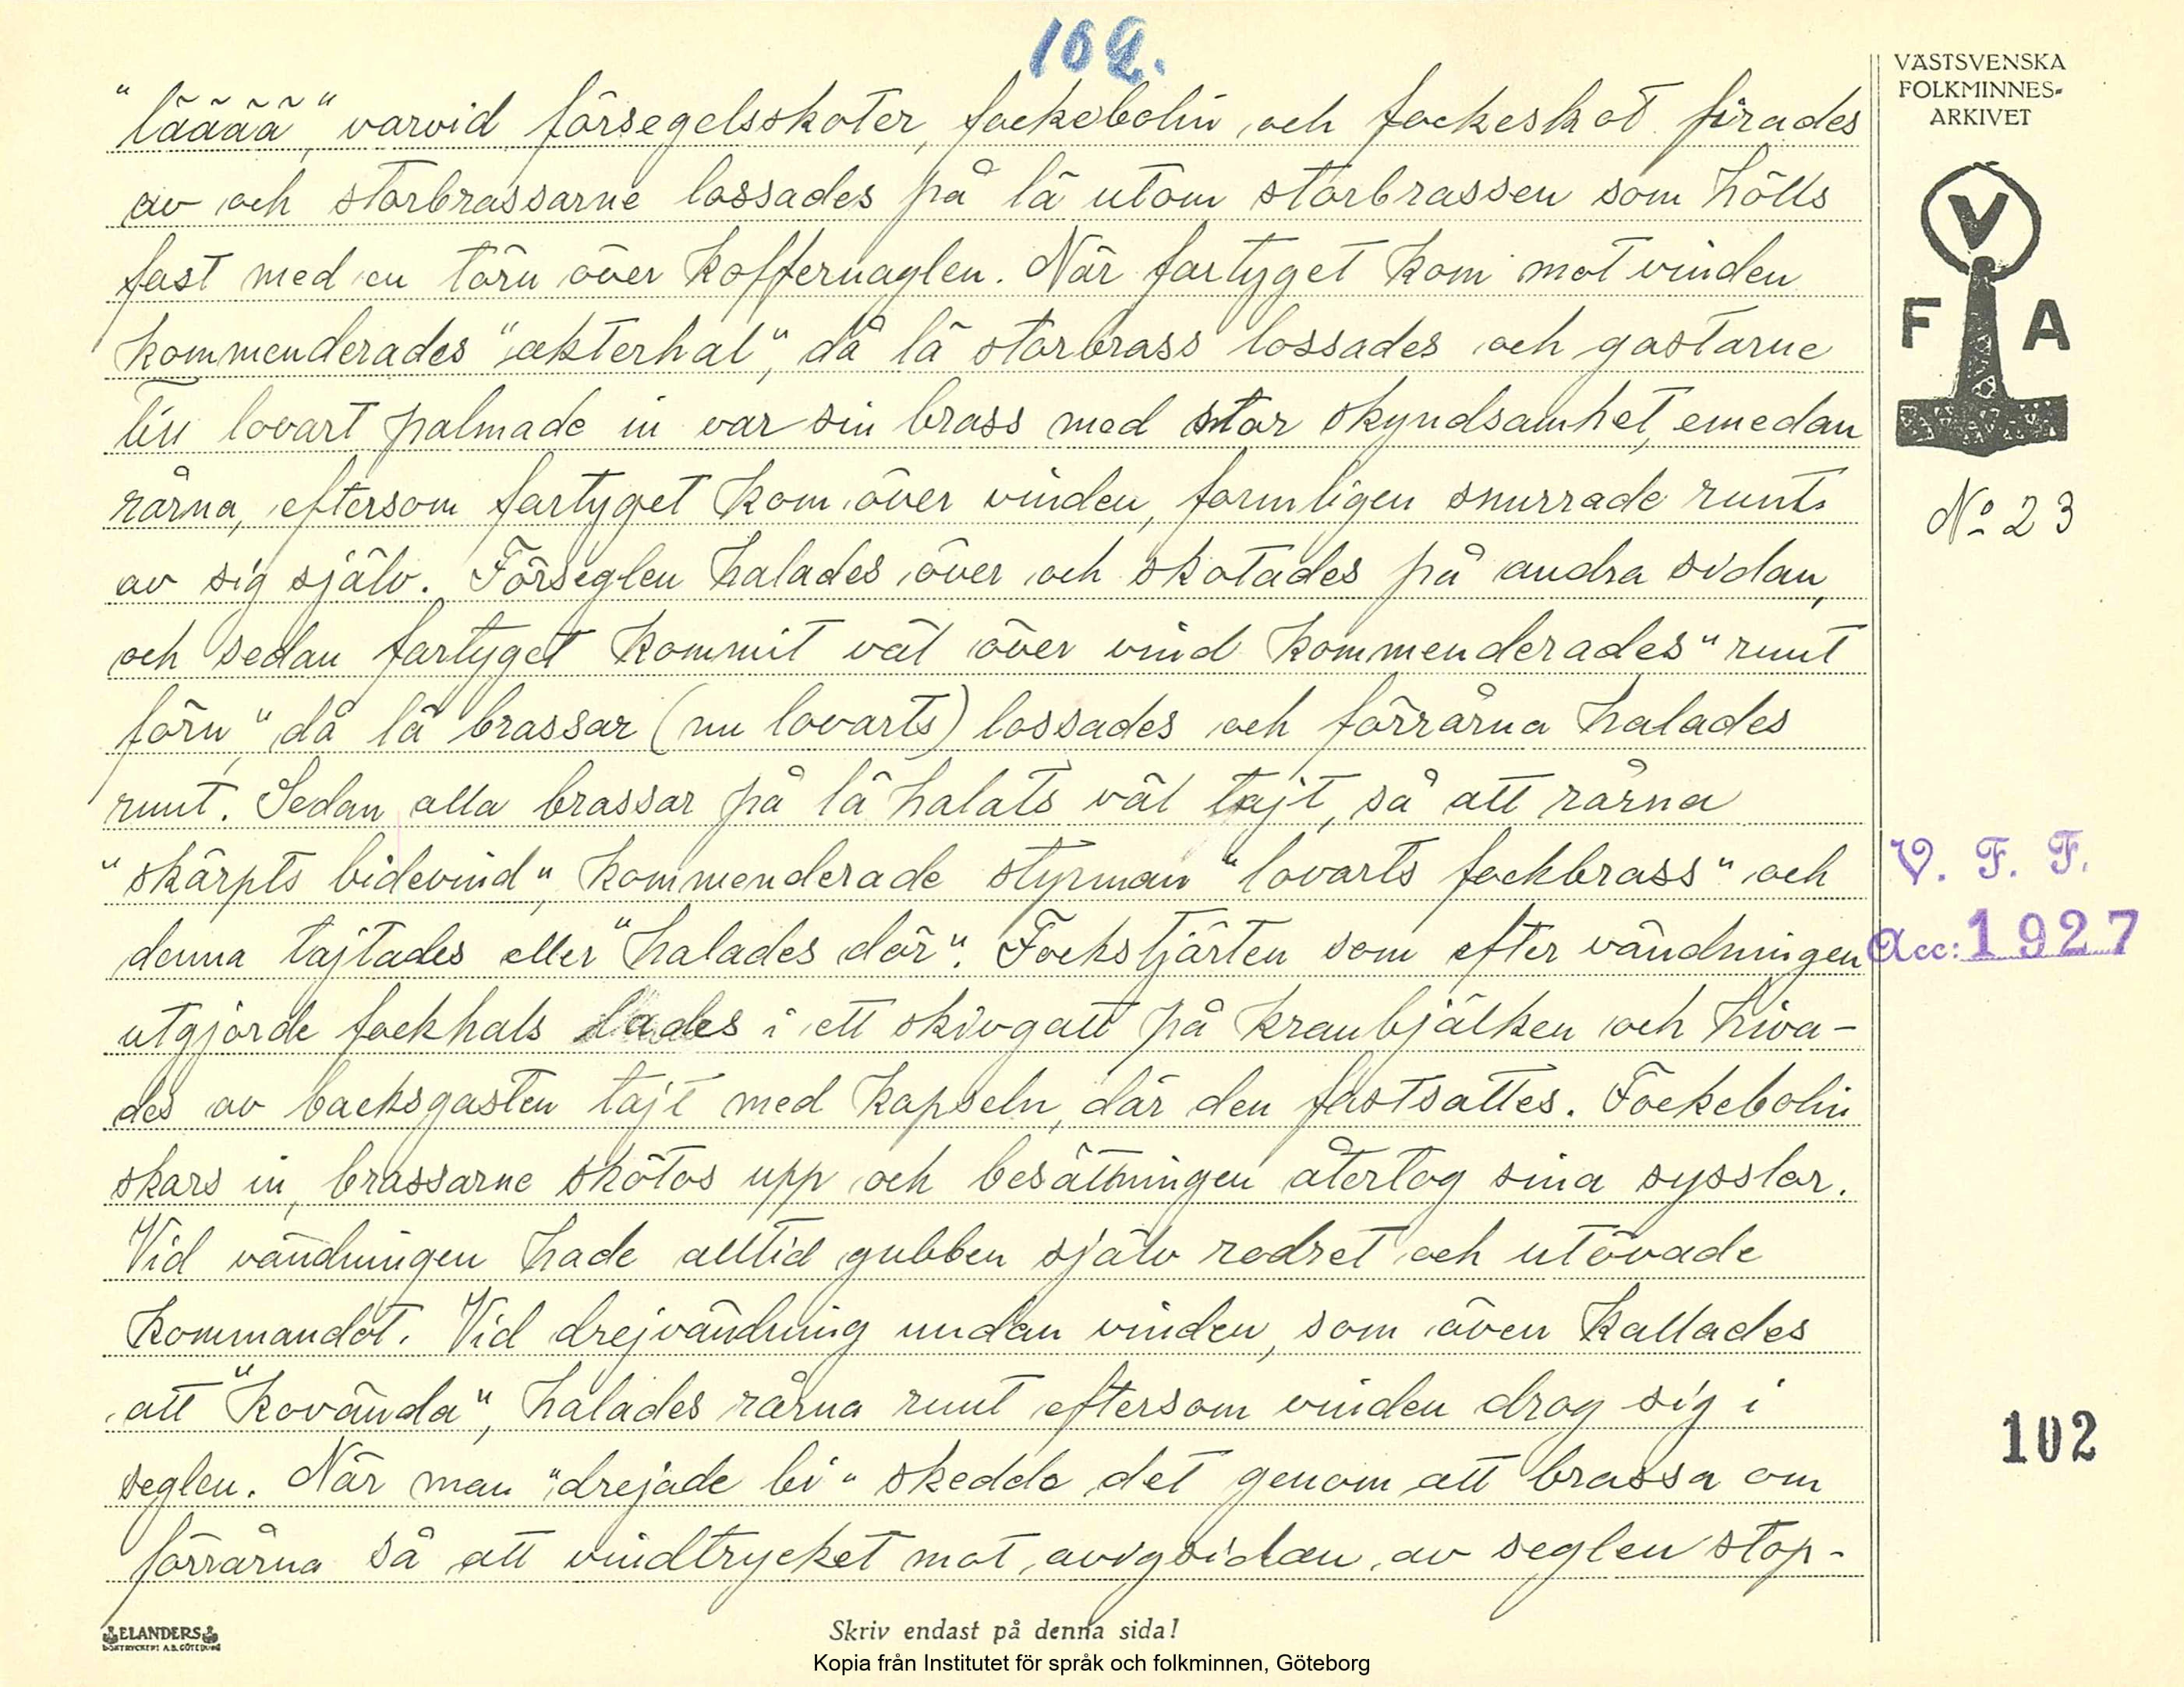 102.
"lääää", varvid försegelsskoter, fockebolin och fockeskot firades
av och storbrassarne lossades på lä utom storbrassen som hölls
fast med en törn över koffernaglen. När fartyget kom mot vinden
kommenderades "akterhal", då lä storbrass lossades och gastarne
till lovart palmade in var sin brass med stor skyndsamhet, emedan
rårna, eftersom fartyget kom över vinden, formligen snurrade runt
av sig själv. Förseglen halades över och skotades på andra sidan,
och sedan fartyget kommit väl över vind kommenderades "runt
förn", då lä brassar (nu lovarts) lossades och förrårna halades
runt. Sedan alla brassar på lä halats väl tajt, så att rårna
"skärpts bidevind", kommenderade styrman "lovarts fockbrass" och
denna tajtades eller "halades dör". Fockstjärten som efter vändningen
utgjorde fockhals lades i ett skivgatt på kranbjälken och hiva-
des av backsgasten tajt med kapseln, där den fastsattes. Fockebolin
skars in, brassarne skötos upp och besättningen återtog sina sysslor.
Vid vändningen hade alltid gubben själv rodret och utövade
kommandot. Vid drejvändning undan vinden, som även kallades
att "kovända", halades rårna runt eftersom vinden drog sig i
seglen. När man "drejade bi" skedde det genom att brassa om
förrårna så att vindtrycket mot avigsidan av seglen stop-
VÄSTSVENSKA
FOLKMINNES-
ARKIVET
V
F A
No 23
V. F. F.
Acc: 1927
102
ELANDERS
BOKTRYCKERI A.B. GÖTEBORG
Skriv endast på denna sida!
Kopia från Institutet för språk och folkminnen, Göteborg